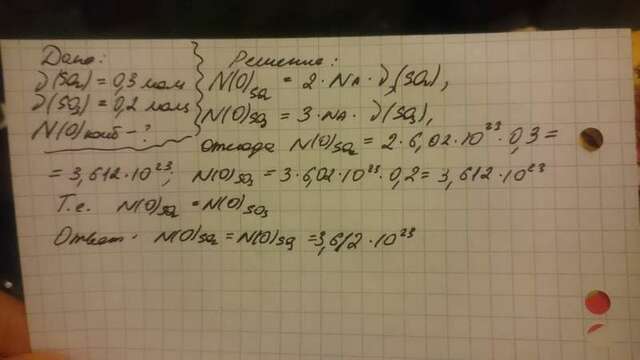 Дано:
ν(SO₂) = 0,3 моль
ν(SO₃) = 0,2 моль
N(O) наиб - ?
Решение:
N(O)SO₂ = 2 · NA · ν(SO₂),
N(O)SO₃ = 3 · NA · ν(SO₃),
откуда N(O)SO₂ = 2 · 6,02 · 10²³ · 0,3 =
= 3,612 · 10²³; N(O)SO₃ = 3 · 6,02 · 10²³ · 0,2 = 3,612 · 10²³
Т.е. N(O)SO₂ = N(O)SO₃
Ответ: N(O)SO₂ = N(O)SO₃ = 3,612 · 10²³